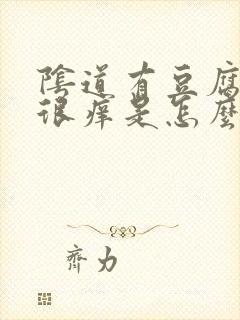 陰道有豆腐
很痒是怎麼
齊力